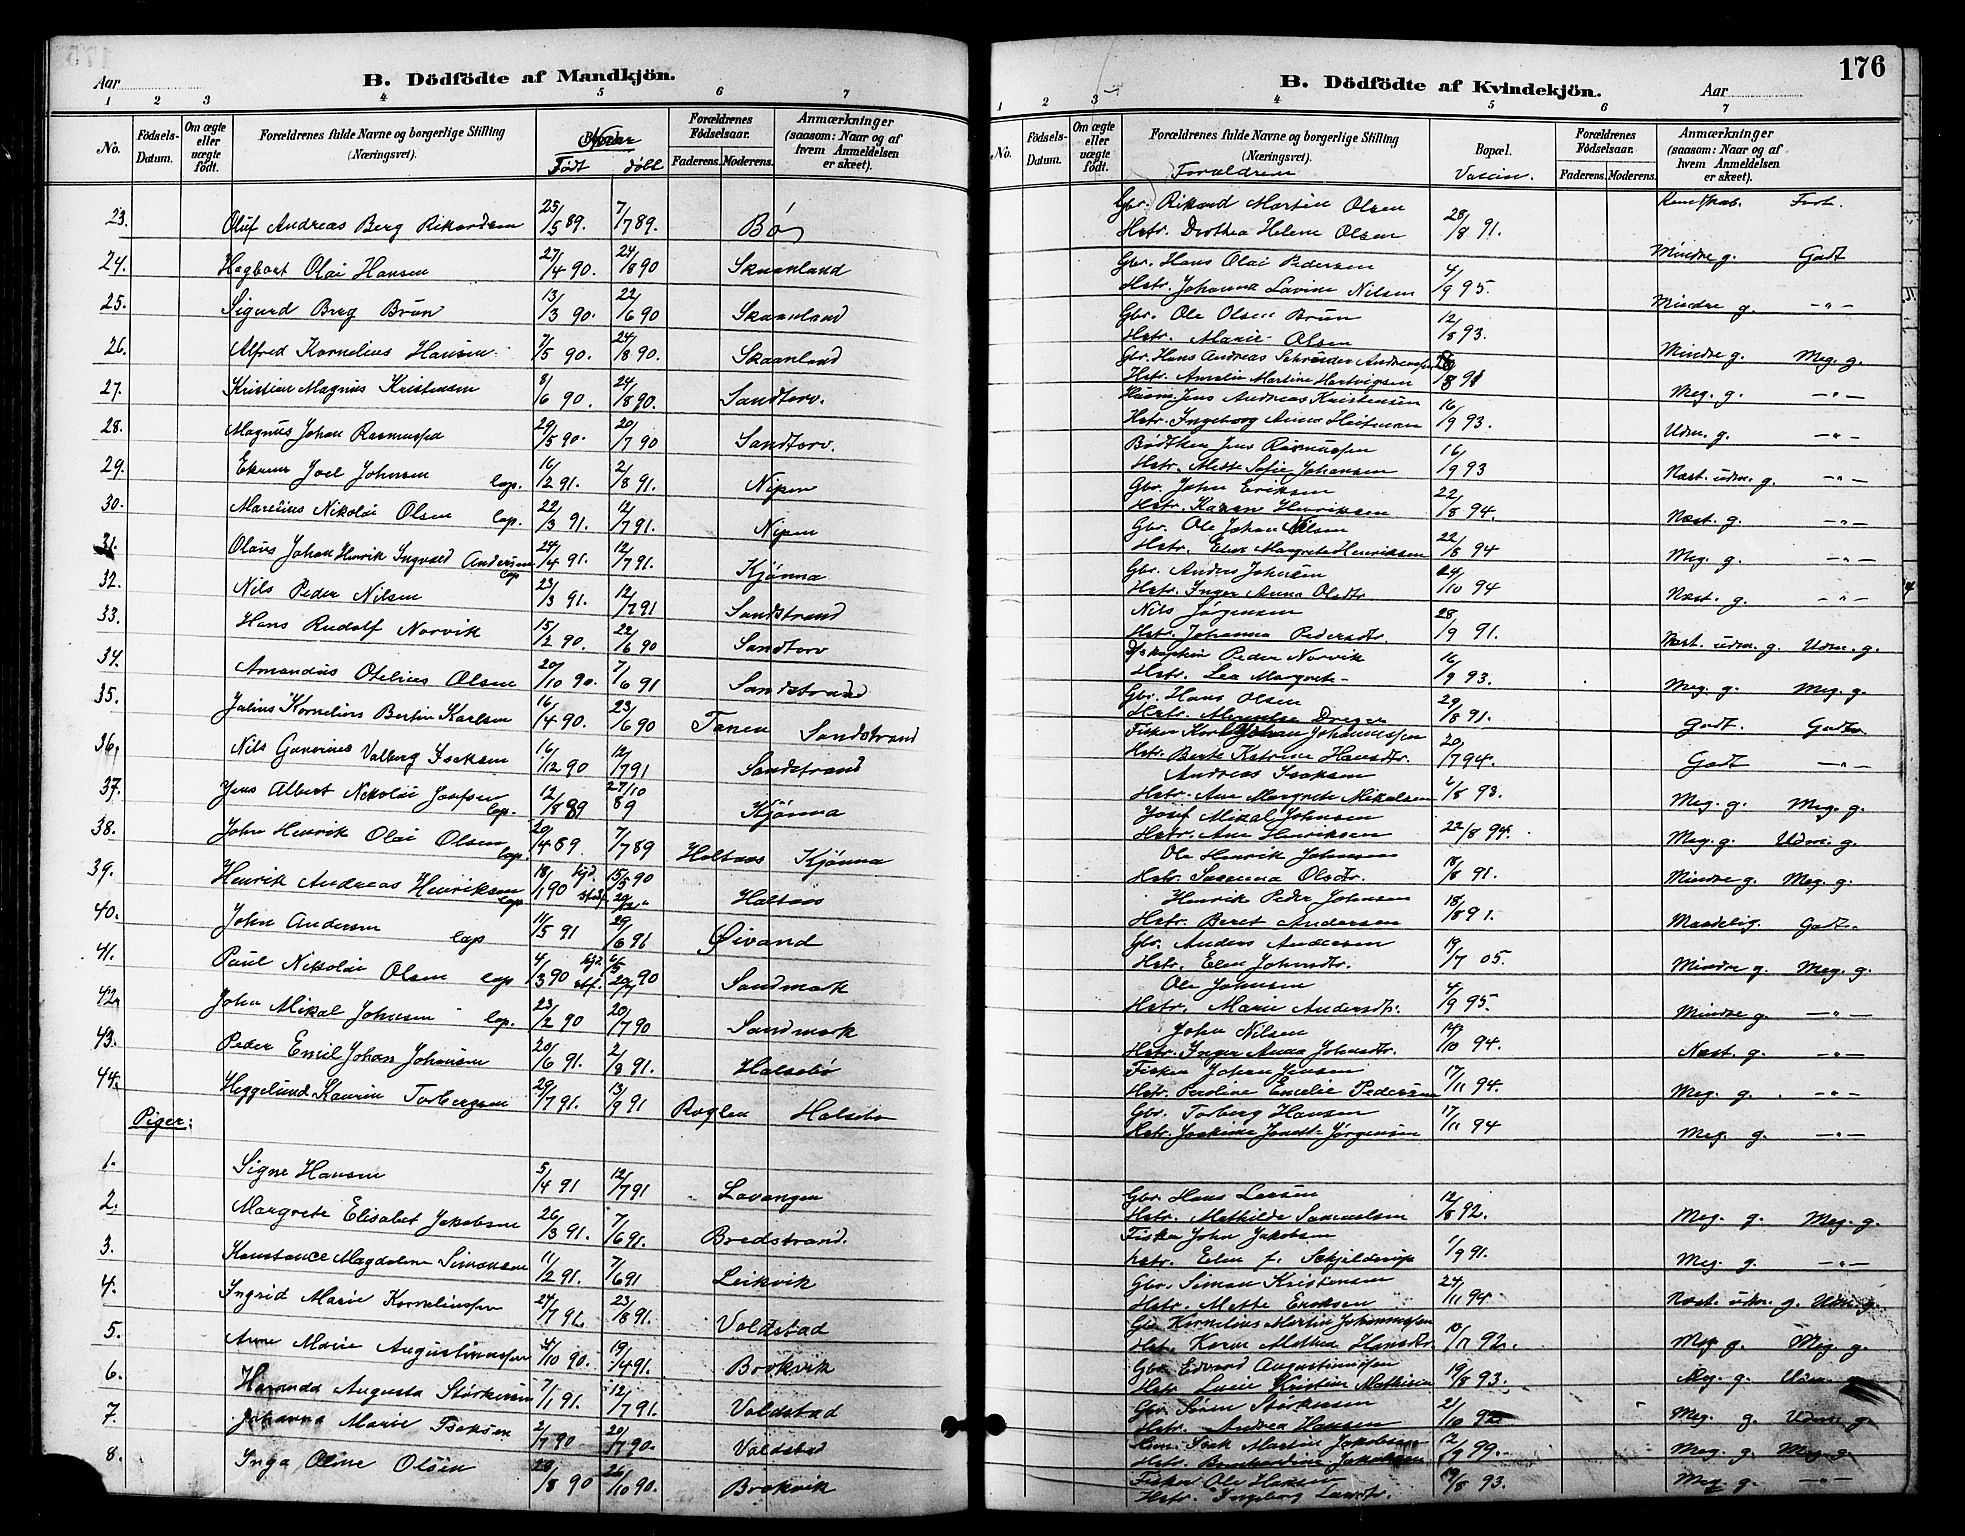 B. Dödfödte af Mandkjön.
Aar
1 2 3 4 5 6 7
No.
Födsels-Datum.
Om ægte eller uægte födt.
Forældrenes fulde Navne og borgerlige Stilling (Næringsvei).
Födt döbt
Forældrenes Födselsaar.
Faderens. Moderens.
Anmærkninger (saasom: Naar og af hvem Anmeldelsen er skeet).
23. Oluf Andreas Berg Rikardsen 25/5 89. 7/7 89. Bø
24. Hagbart Olai Hansen 27/4 90. 24/8 90 Skaanland
25. Sigurd Berg Brun 13/3 90. 22/6 90 Skaanland
26. Alfred Kornelius Hansen 7/5 90. 24/8 90. Skaanland
27. Kristian Magnus Kristensen 8/6 90. 24/8 90. Sandtorv.
28. Magnus Johan Rasmussen 29/5 90. 20/7 90 Sandtorv.
29. Joel Johnsen lap. 16/2 91. 2/8 91. Nipen
30. Marelius Nikolai Olsen lap. 22/3 91. 12/7 91. Nipen
31. Olaus Johan Henrik Ingvald Andersen lap 24/4 91. 12/7 91. Kjønna
32. Nils Peder Nilsen 23/3 91. 12/7 91 Sandstrand
33. Hans Rudolf Norvik 15/2 90. 22/6 90 Sandtorv
34. Amandus Otelius Olsen 20/10 90. 7/6 91 Sandstrand
35. Julius Kornelius Bertin Karlsen 16/4 90. 23/6 90 Tanen Sandstrand
36. Nils Gunerius Valberg Isaksen 16/12 90 12/7 91 Sandstrand
37. Jens Albert Nikolai Josefsen lap. 12/8 89 27/10 89 Kjønna
38. John Henrik Olai Olsen lap. 20/4 89 7/7 89 Holtaas Kjønna
39. Henrik Andreas Henriksen lap 18/1 90 hjd. 15/5 90 Holtaas
40. John Andersen lap 11/5 91 29/6 91 Øivand
41. Paul Nikolai Olsen lap 4/3 90 hjd. 90 Sandmark
42. John Mikal Johnsen lap. 23/2 90 20/7 90 Sandmark
43. Peder Emil Johan Johansen 20/6 91. 2/8 91. Halsebø
44. Heggelund Kaurin Torbergsen 29/7 91. 13/9 91 Roglen Halsebø
Piger:
1. Signe Hansen 5/4 91 12/7 91 Lavangen
2. Margrete Elisabet Jakobsen 26/3 91. 7/6 91. Bredstrand.
3. Konstance Magdalena Simonsen 11/2 91. 7/6 91 Leikvik
4. Ingrid Marie Korneliussen 24/7 91. 23/8 91. Voldstad
5. Anne Marie Augustinussen 4/10 90. 19/4 91. Brokvik
6. Augusta Størkersen 7/1 91. 12/7 91. Voldstad
7. Johanna Marie Isaksen 2/7 90 20/7 90. Voldstad
8. Inga Oline Olsen 23/8 90 26/10 90. Brokvik
176
B. Dödfödte af Kvindekjön.
Aar
1 2 3 4 5 6 7
No.
Födsels-Datum.
Om ægte eller uægte födt.
Forældrenes fulde Navne og borgerlige Stilling (Næringsvei).
Forældrene
Bopæl.
Vaccin.
Forældrenes Födselsaar.
Faderens. Moderens.
Anmærkninger (saasom: Naar og af hvem Anmeldelsen er skeet).
Kundskab. Forh.
Gbr. Rikard Martin Olsen
Hstr. Dorthea Helene Olsen 28/8 91. Mindre g. Godt
Gbr. Hans Olai Pedersen
Hstr. Johanna Lavine Nilsen 4/9 95. Mindre g. -"-
Gbr. Ole Olsen Brun
Hstr. Marie Olsen 12/8 93. Mindre g. Meg. g.
Gbr. Hans Andreas Schrøder
Hstr. Amalie Martine Hartvigsen Meg. g. -"-
Husm. Jens Andreas Kristensen
Hstr. Ingeborg 16/9 93. Udm. g. -"-
Bødtker Jens Rasmussen
Hstr. Mette Sofie Johansen 16/9 93 Næst. udm. g. -"-
Gbr. John Eriksen
Hstr. Karen Henriksen 22/8 94. Næst. g. -"-
Gbr. Ole Johan Nilsen
Hstr. Elen Margrete Henriksen 22/8 94 Meg. g. -"-
Gbr. Anders Johnsen
Hstr. Inger Anna Olsdtr. 24/10 94 Næst. g. -"-
Nils Jørgensen
Hstr. Johanna Pedersdtr. 28/9 91. Næst. udm. g. Udm. g.
Peder Norvik
Hstr. Lea Margrete 16/9 93. Meg. g. Meg. g.
Gbr. Hans Olsen
Hstr. Dreyer 29/8 91. Godt. Godt.
Fisker Karl Johan Johannessen
Hstr. Berte Katrine Hansdtr. 20/7 94. Godt -"-
Andreas Isaksen
Hstr. Ane Margrete Mikalsen 6/8 93. Meg. g. Meg. g.
Josef Mikal Johnsen
Hstr. Ane Henriksen 22/8 94. Meg. g. Udm. g.
Ole Henrik Johnsen
Hstr. Susanna Olsdtr. 18/8 91. Mindre g. Meg. g.
Henrik Peder Johnsen
Hstr. Beret Andersen 18/8 91. Maadelig. Godt.
Gbr. Anders Andersen
Hstr. Elen Johnsdtr. 19/7 05. Mindre g. Meg. g.
Ole Johnsen
Hstr. Marie Andersdtr. 4/9 95. Mindre g. -"-
John Nilsen
Hstr. Inger Anna Johnsdtr. 94. Næst. g. -"-
Fisker Johan Jensen
Hstr. Peroline Emelie Pedersen 17/11 94. Meg. g. -"-
Gbr. Torberg Hansen
Hstr. Jørgensen 17/11 94 Meg. g. -"-
Gbr. Hans Larsen
Hstr. Mathilde Samuelsen 12/8 92. Meg. g. Meg. g.
Fisker John Jakobsen
Hstr. Elen f. Schjelderup 1/9 91. Meg. g. -"-
Gbr. Simon Kristensen
Hstr. Mette Enoksen 24/11 94. Næst. udm. g. Udm. g.
Gbr. Kornelius Martin Johannessen
Hst. Karen Mathea Hansdtr. 92. Meg. g. Meg. g.
Gbr. Edvard Augustinussen
Hstr. Lucie Kristine Mathisen 19/8 93. Meg. g. Udm.
Gbr. Søren Størkersen
Hstr. Andrea Hansen 21/10 92 Meg. g. Udm. g.
Isak Martin Jakobsen
Hstr. Bernhardine 12/9 99. Meg. g. Meg. g.
Fisker Ole Hansen
Hstr. Ingeborg 19/8 93. Meg. g. -"-